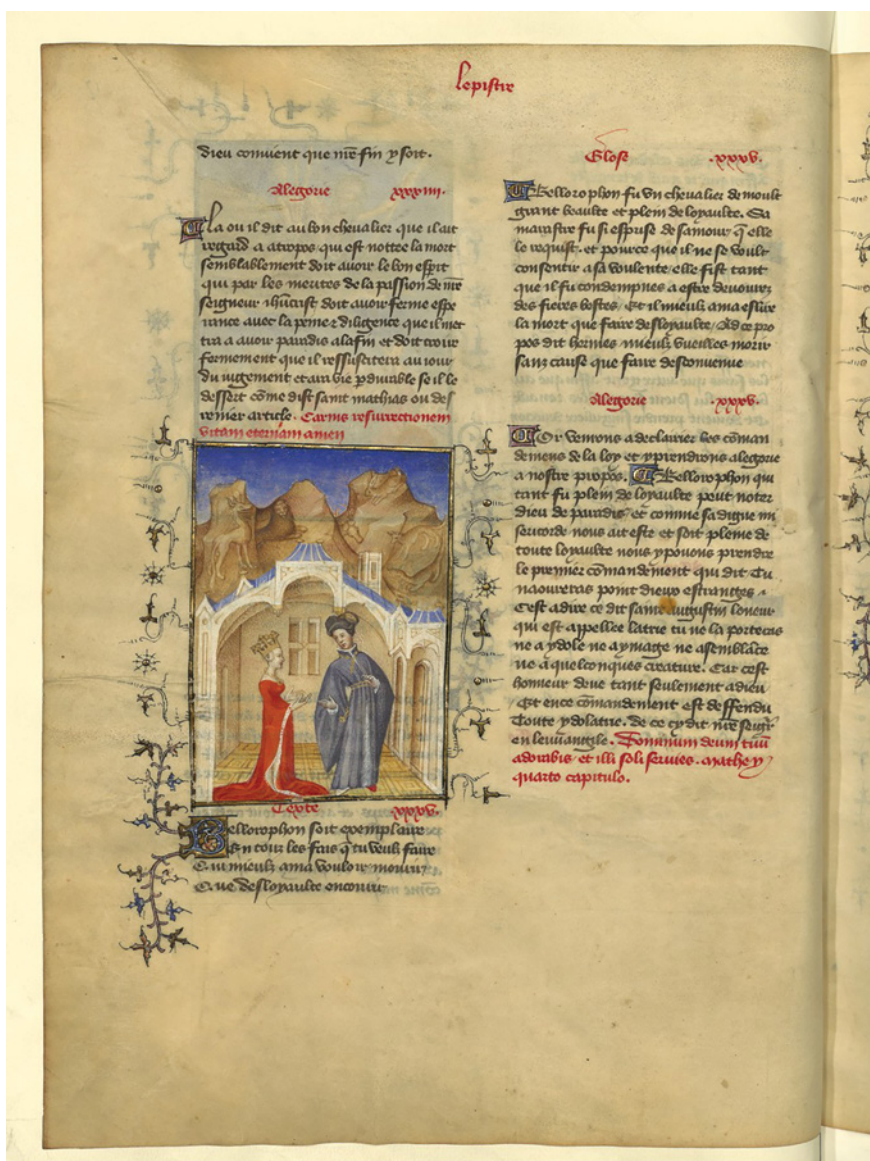 Lepistre
dieu convient que nr̃e fin y soit.
Alegorie .xxxiiii.
La ou il dit au bon chevalier que il ait
regard a atropos qui est nottee la mort
semblablement doit avoir le bon esperit
qui par les merites de la passion de nr̃e
seigneur ihũcrist doit avoir ferme espe
rance avec la peine ⁊ diligence que il met
tra a avoir paradis a la fin et doit croire
fermement que il ressuscitera au iour
du iugement et ara vie ꝑdurable se il le
dessert cõme dist saint mathias ou der
renier article. Carnis resurrectionem
vitam eternam amen
Texte .xxxv.
Bellorophon soit exemplaire
En tous les fais q̃ tu veulx faire
Qui mieulx ama vouloir mourir
Que desloyaulte encourir
Glose .xxxv.
Bellorophon fu un chevalier de moult
grant beaulte et plein de loyaulte. Sa
marastre fu si esprise de samour q̃ elle
le requist. et pource que il ne se voult
consentir a sa voulente elle fist tant
que il fu condempnes a estre devourez
des fieres bestes. Et il mieulx ama eslire
la mort que faire desloyaulte. Ad ce pro
pos dit hermes mieulx vueilles morir
sanz cause que faire desconvenue
Alegorie .xxxv.
Or venrons a declairier les cõman
demens de la loy et y prendrons alegorie
a nostre propos. Bellorophon qui
tant fu plein de loyaulte peut noter
dieu de paradis. et comme sa digne mi
sericorde nous ait este et soit pleine de
toute loyaulte nous y pouons prendre
le premier cõmandement qui dit. Tu
naoureras point dieux estranges.
Cest a dire ce dit saint augustin loneur
qui est appellee latrie tu ne la porteras
ne a ydole ne a ymage ne a semblãce
ne a quelconques creature. Car cest
honneur deue tant seulement a dieu
Et en ce cõmandement est deffendu
Toute ydolatrie. de ce cy dit nr̃e seigr̃
en leuvangile. Dominum deum tuũ
adorabis et illi soli servies. Mathey
quarto capitulo.